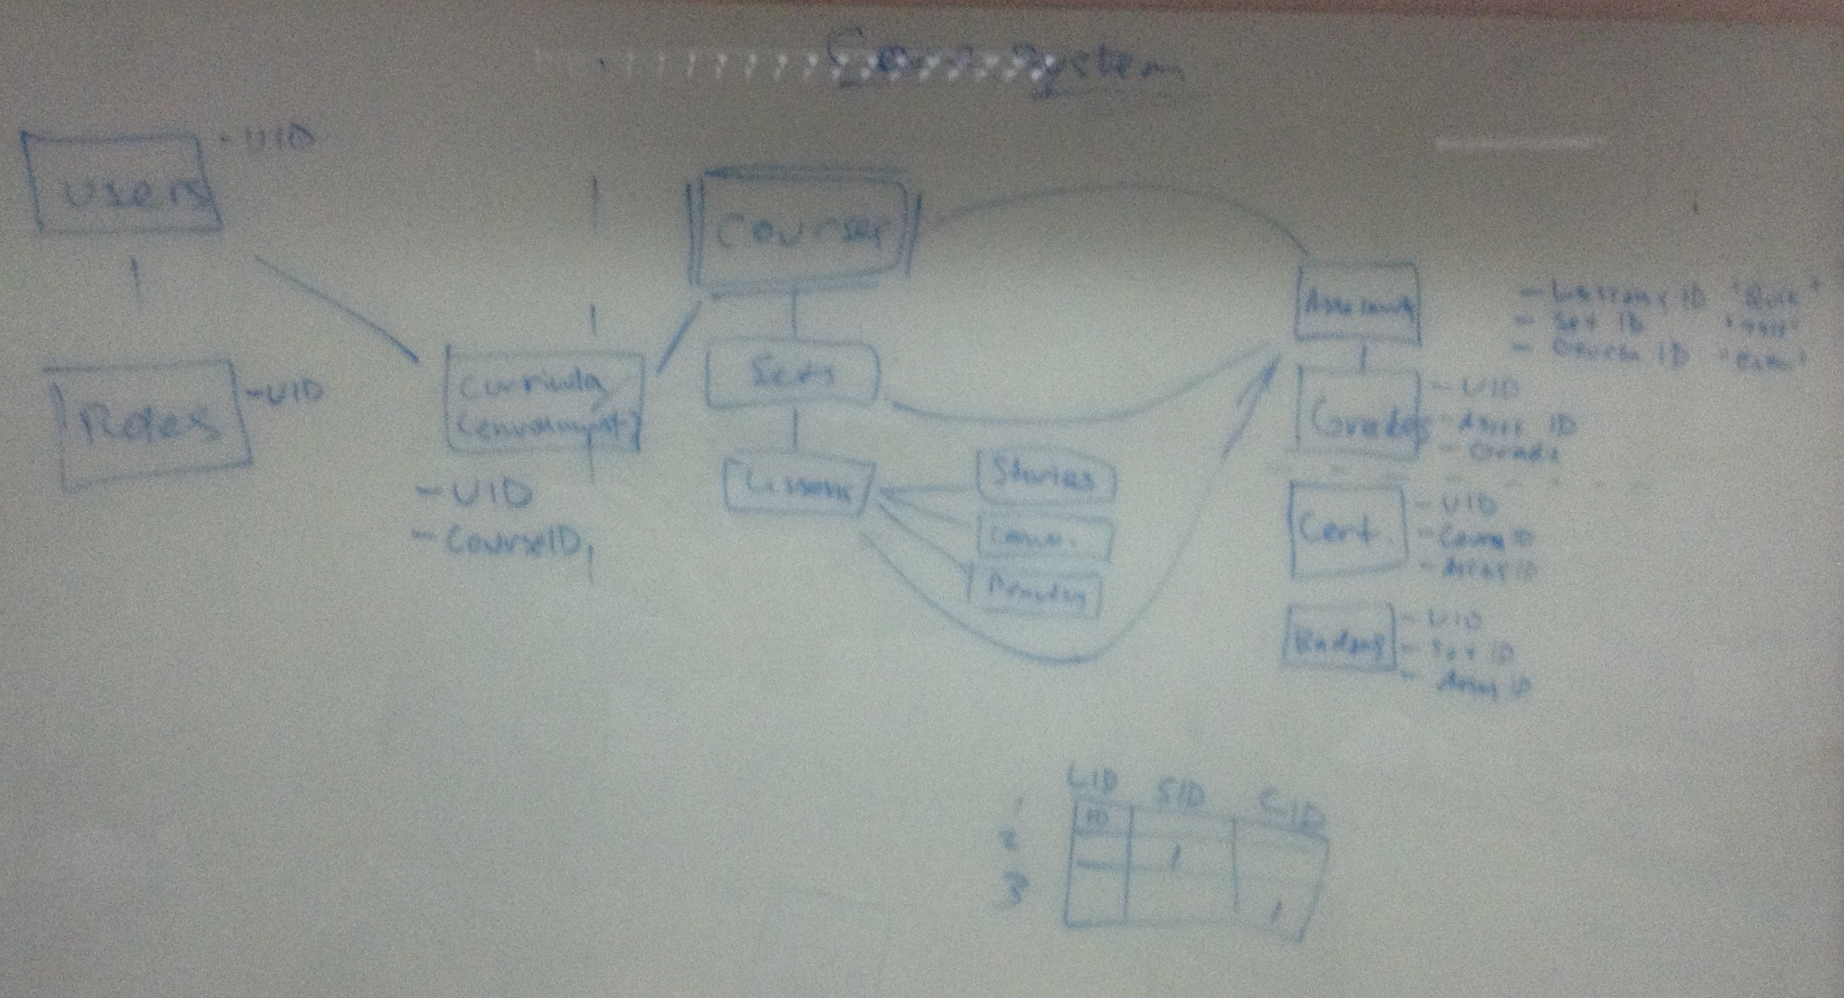 System
Users
- UID
Roles
- UID
Curricula
(enrolment)
- UID
- CourseID
Courses
Sets
Lessons
Stories
Comm.
Assessments
- Lessons ID "Quiz"
- Set ID "Test"
- Course ID "Exam"
Grades
- UID
- Assess ID
- Grade
Cert.
- UID
- Course ID
- Assess ID
Badges
- UID
- Set ID
- Assess ID
LID SID CID
1 10
2 1
3 1